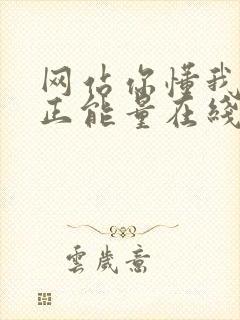 网站你懂我
正能量在线
雲歲意